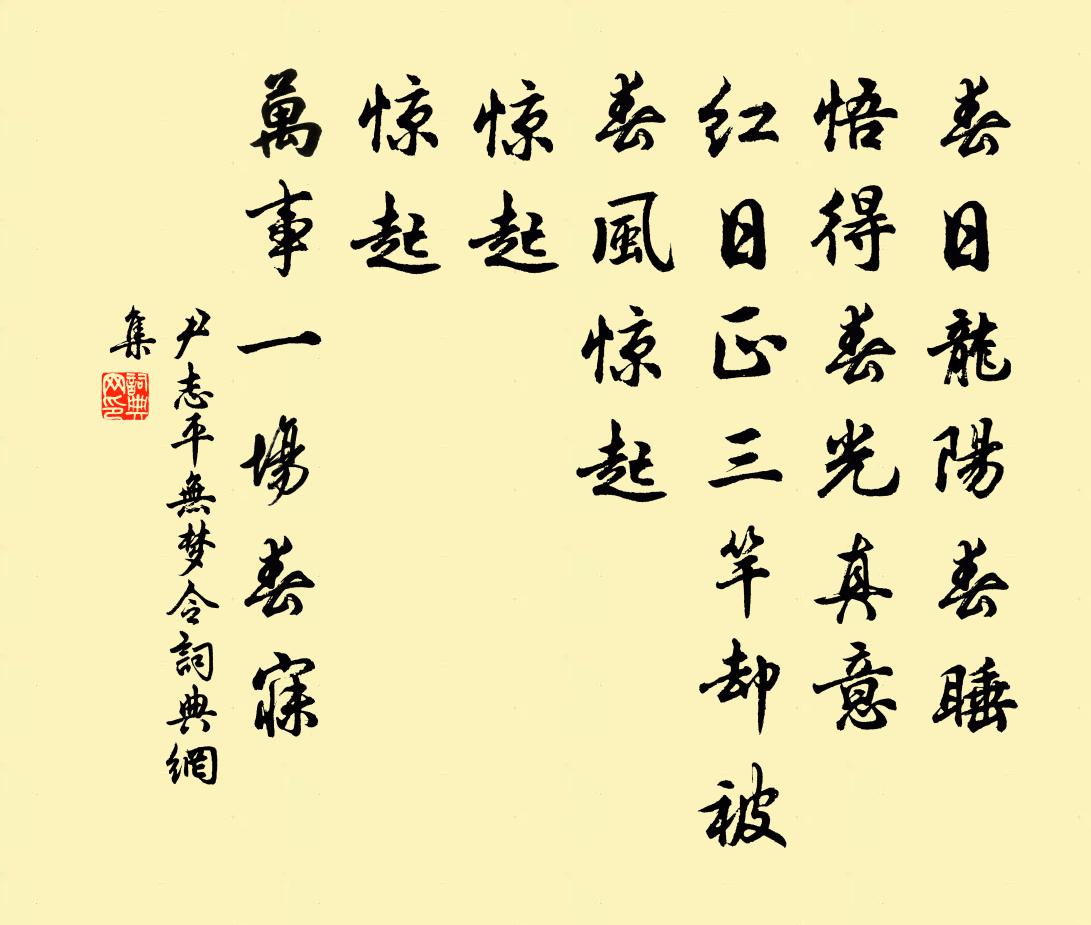 春日龍陽春睡
悟得春光真意
红日正三竿却被
春風惊起
惊起
惊起
萬事一場春寐
尹志平無梦令詞典網
集
詞典網印